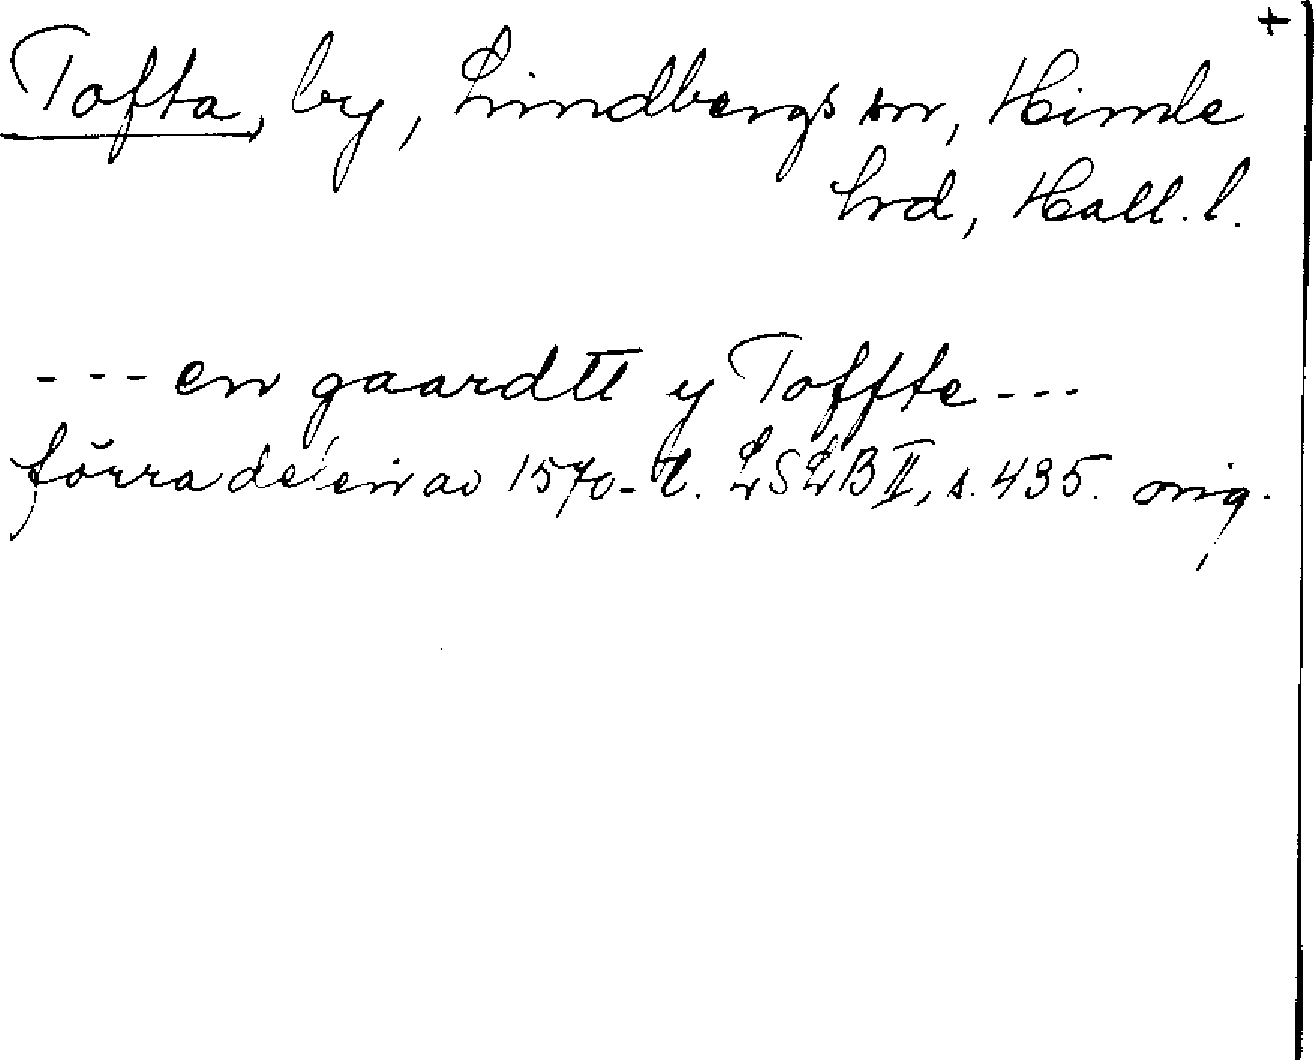 +
Tofta, by, Lindbergs sn, Himle
hrd, Hall. l.
--- en gaardtt y Toffte ---
förra delen av 1570-t. LSLB II, s. 435. orig.